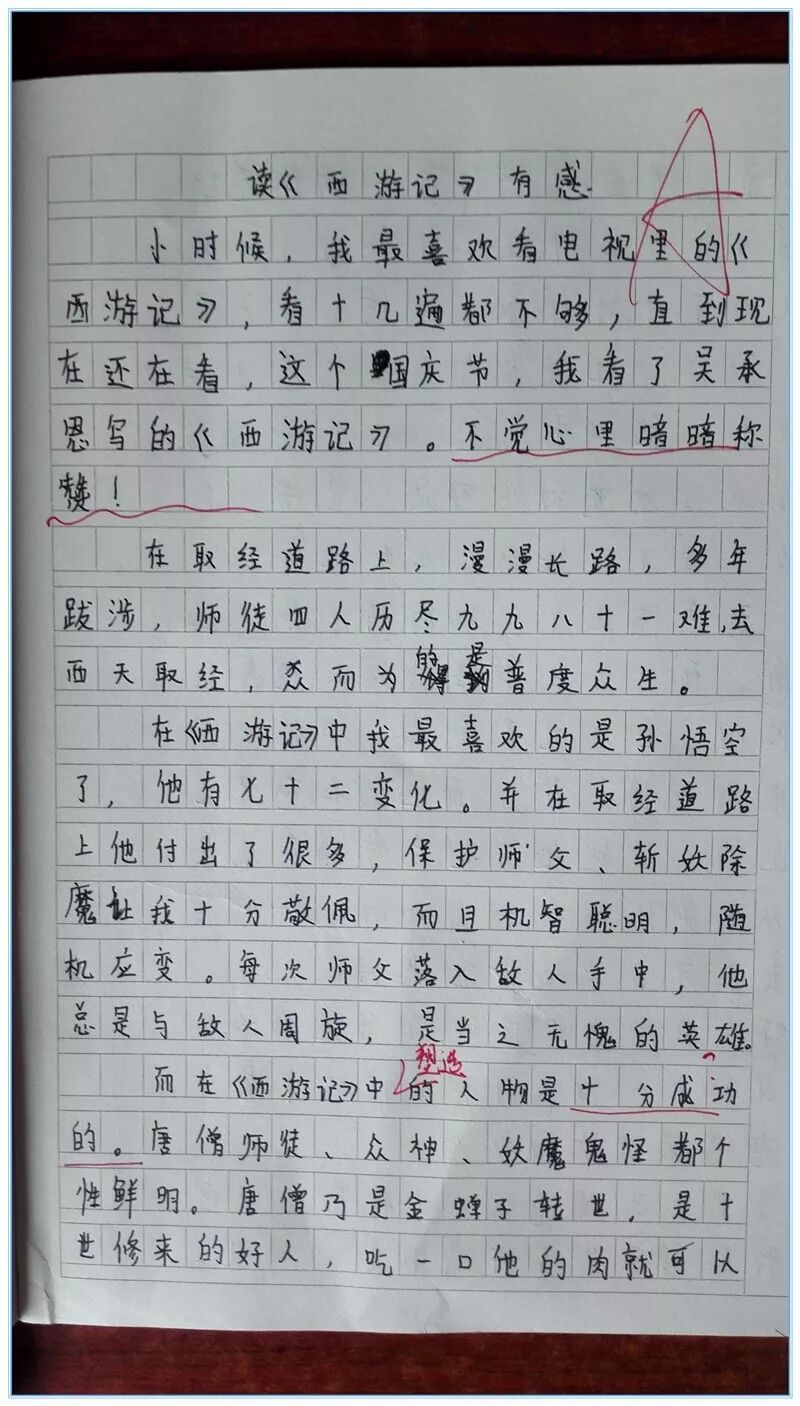 读《西游记》有感
A
小时候，我最喜欢看电视里的《
西游记》，看十几遍都不够，直到现
在还在看，这个国庆节，我看了吴承
恩写的《西游记》。不觉心里暗暗称
赞！
在取经道路上，漫漫长路，多年
跋涉，师徒四人历尽九九八十一难，去
西天取经，然而为的是普度众生。
在《西游记》中我最喜欢的是孙悟空
了，他有七十二变化。并在取经道路
上他付出了很多，保护师父、斩妖除
魔让我十分敬佩，而且机智聪明，随
机应变。每次师父落入敌人手中，他
总是与敌人周旋，是当之无愧的英雄。
塑造
而在《西游记》中的人物是十分成功
的。唐僧师徒、众神、妖魔鬼怪都个
性鲜明。唐僧乃是金蝉子转世，是十
世修来的好人，吃一口他的肉就可以